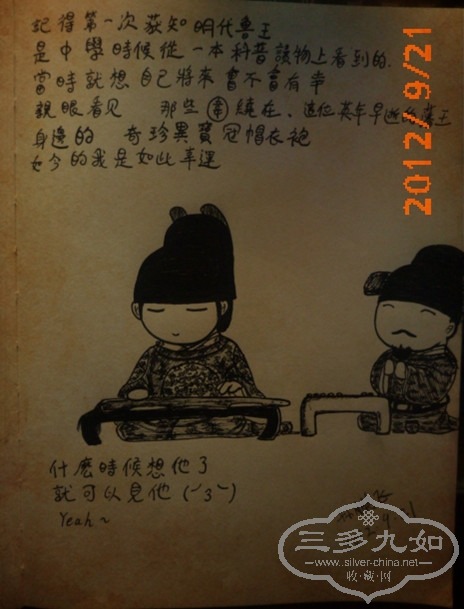 記得第一次获知明代鲁王
是中學時候從一本科普讀物上看到的.
當時就想自己將來會不會有幸
親眼看见 那些圍繞在、這位英年早逝的王
身邊的 奇珍異寶冠帽衣袍
如今的我是如此幸運
2012/9/21
什麼時候想他了
就可以見他 (´3`)
Yeah~
三多九如
www.silver-china.net
收·藏·网